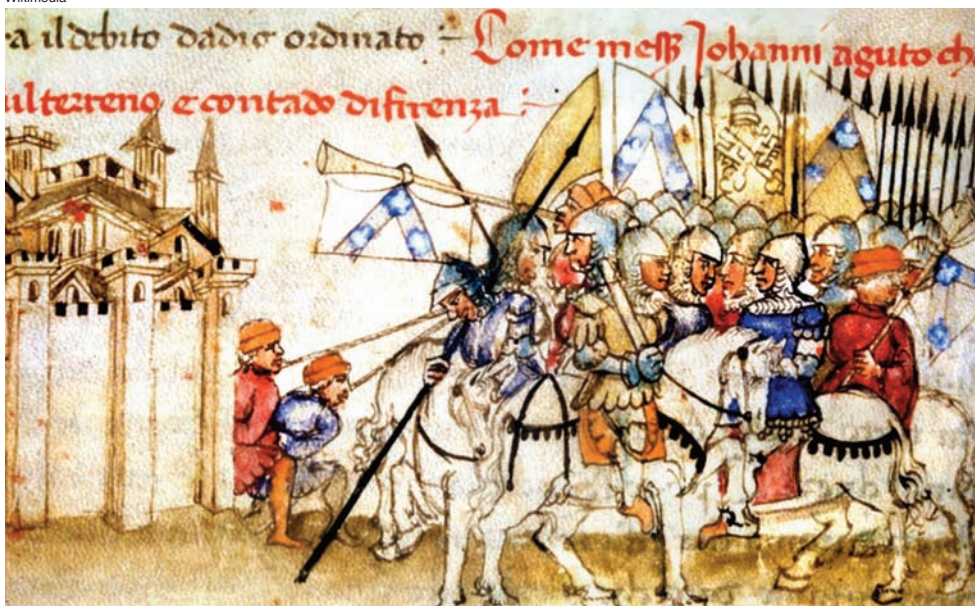 Wikimedia
a il debito dadio ordinato :~ Come mess Johanni aguto ch
ul terreno e contado di firenza :